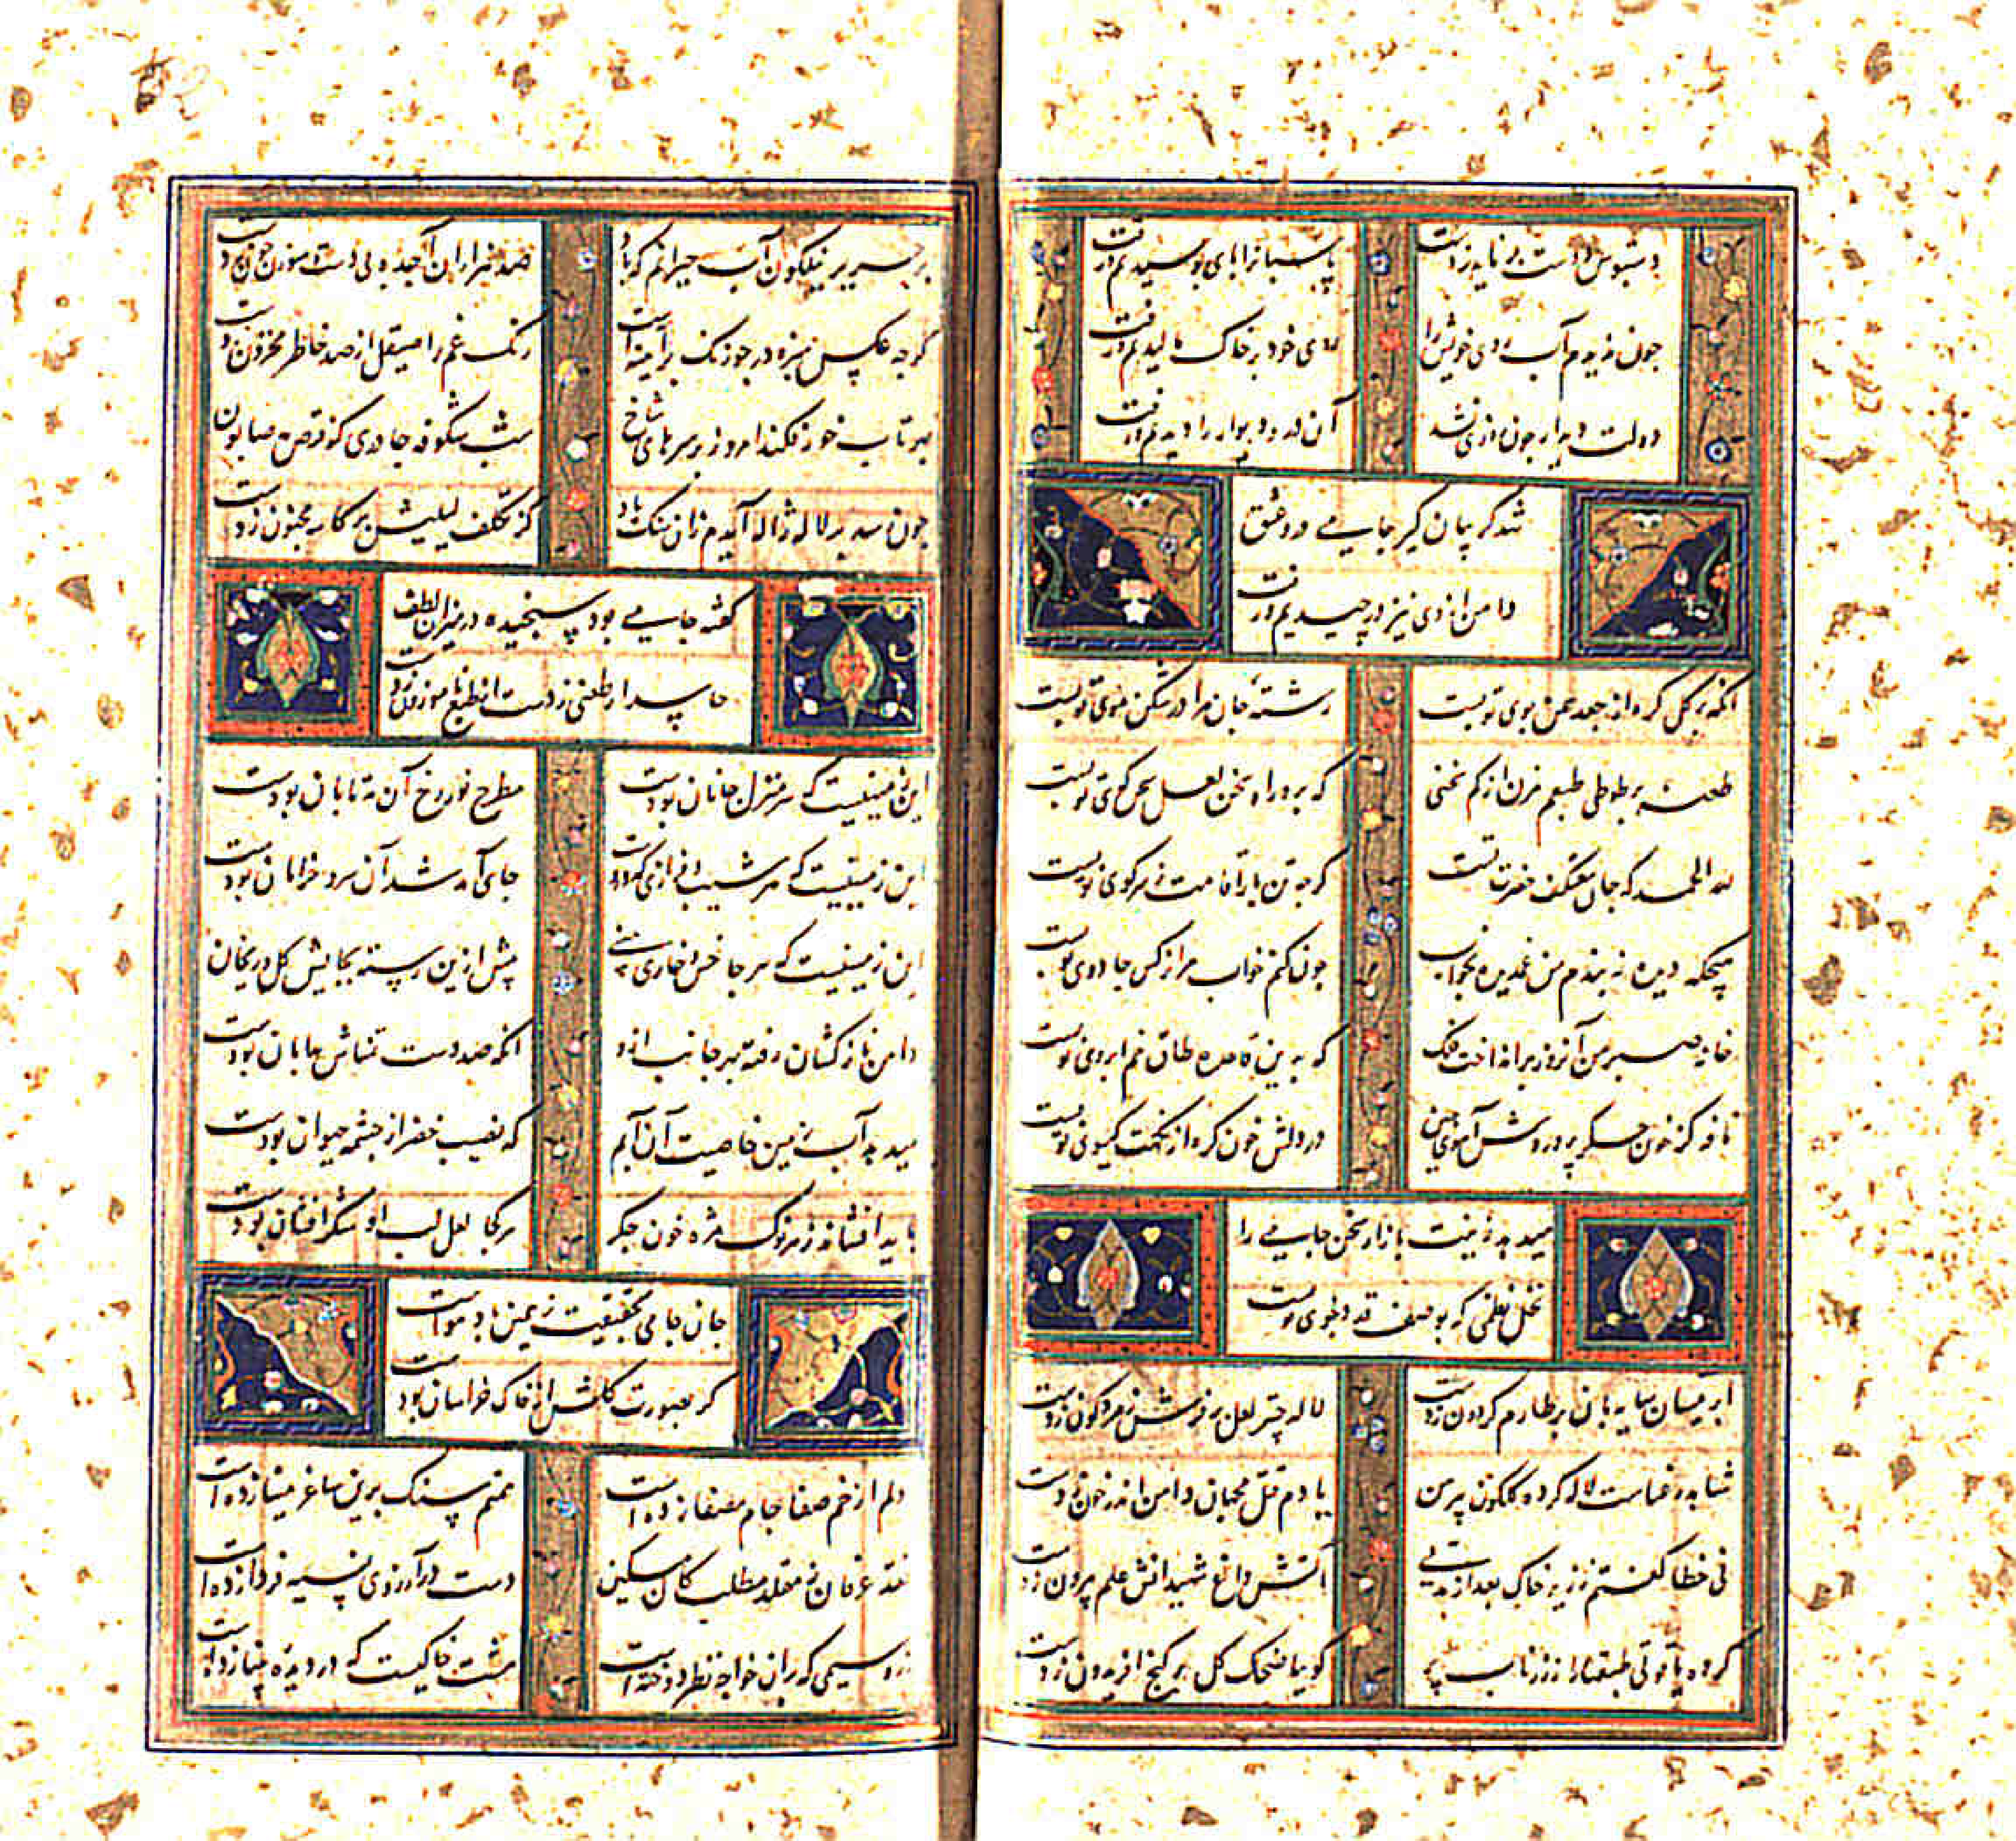 دستبوس دوست بر ناید ز دست
پاسبانرا پای بوسیدیم و رفت
چون ندیدم آب روی خویش را
روی خود بر خاک مالیدیم و رفت
دولت دیدار چون روزی نشد
آن در و دیوار را دیدیم و رفت
شد گریبان گیر جامی درد عشق
دامن از وی نیز در چیدیم و رفت
آنکه بر گل گره از جعد سمن بوی تو بست
رشته جان مرا در شکن موی تو بست
طعنه بر طوطی طبعم مزن از کم سخنی
که برو راه سخن لعل سخن گوی تو بست
لله الحمد که جان معتکف حضرت تست
گرچه تن بار اقامت ز سر کوی تو بست
هیچگه دیده نه بندم من غمدیده بخواب
چون کنم خواب مرا نرگس جادوی تو بست
خانه صبر من آنروز برانداخت فلک
که به این قاعده طاق خم ابروی تو بست
نافه کز خون جگر پرورش آهوی چین
در دلش خون گره از نکهت گیسوی تو بست
میدهد زینت بازار سخن جامی را
نخل نظمی که بوصف قد دلجوی تو بست
ابر نیسان سایه بان بر طارم گردون زدست
لاله چتر لعل بر فرش زمردگون زدست
شاهد رعناست لاله کرده گلگون پیرهن
یا دم قتل محبان دامن اندر خون زدست
نی خطا گفتم ز زیر خاک بعد از مدتی
آتش داغ شهیدانش علم بیرون زدست
کرده یاقوتی طبقها را ز زر ناب پر
گوییا ضحاک گل بر گنج افریدون زدست
بر حریر نیلگون آب حیرانم که باد
صد هزاران آجده بی دست و سوزن چون زدست
گرچه عکس سبزه در جو زنگ بر آینه است
زنگ غم را صیقل از صد خاطر محزون زدست
بهر تاب خور فکند امروز بر سرهای شاخ
شب شکوفه جامه‌ی کز قرص صابون
چون رسد بر لاله ژاله آیدم زان سنگ یاد
کز تکلف لیلیش بر کاسه مجنون زدست
گفته جامی بود سنجیده در میزان لطف
جا پسدار طعنی زدست از طبع ناموزون زدست
این زمینیست که سر منزل جانان بودست
مطرح نور رخ آن مه تابان بودست
این زمینیست که هر شیب و فرازی که دروست
جای آمد شد آن سرو خرامان بودست
این زمینیست که هر جا خس و خاری بینی
پیش ازین رسته بجایش گل و ریحان
دامن ناز کشان رفته بهر جانب ازو
آنکه صد دست تمناش بدامان بودست
میدهد آب زمین خاصیت آن آبم
که نصیب خضر از چشمه حیوان بودست
باید افشاند ز هر نوک مژه خون جگر
هر کجا لعل لب او شکر افشان بودست
جان جامی بحقیقت ز همین باد و هواست
گر بصورت گلش از خاک خراسان بودست
دلم از خم صفا جام مصفا زده است
همتم سنگ برین ساغر مینا زده است
نقد عرفان ز مقلد مطلب کان مسکین
دست در آرزوی نسیه فردا زده است
زر و سیمی که بران خواجه نظر دوخته است
مشت خاکیست که در دیده بینا زده است